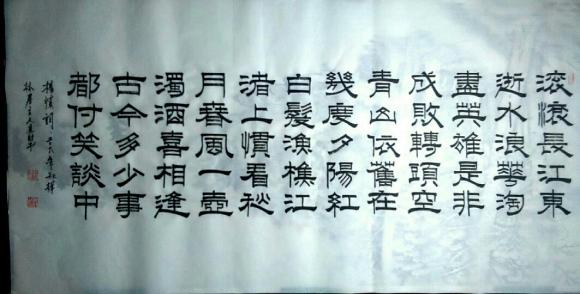 滾滾長江東
逝水浪花淘
盡英雄是非
成敗轉頭空
青山依舊在
幾度夕陽紅
白髮漁樵江
渚上慣看秋
月春風一壺
濁酒喜相逢
古今多少事
都付笑談中
楊慎詞